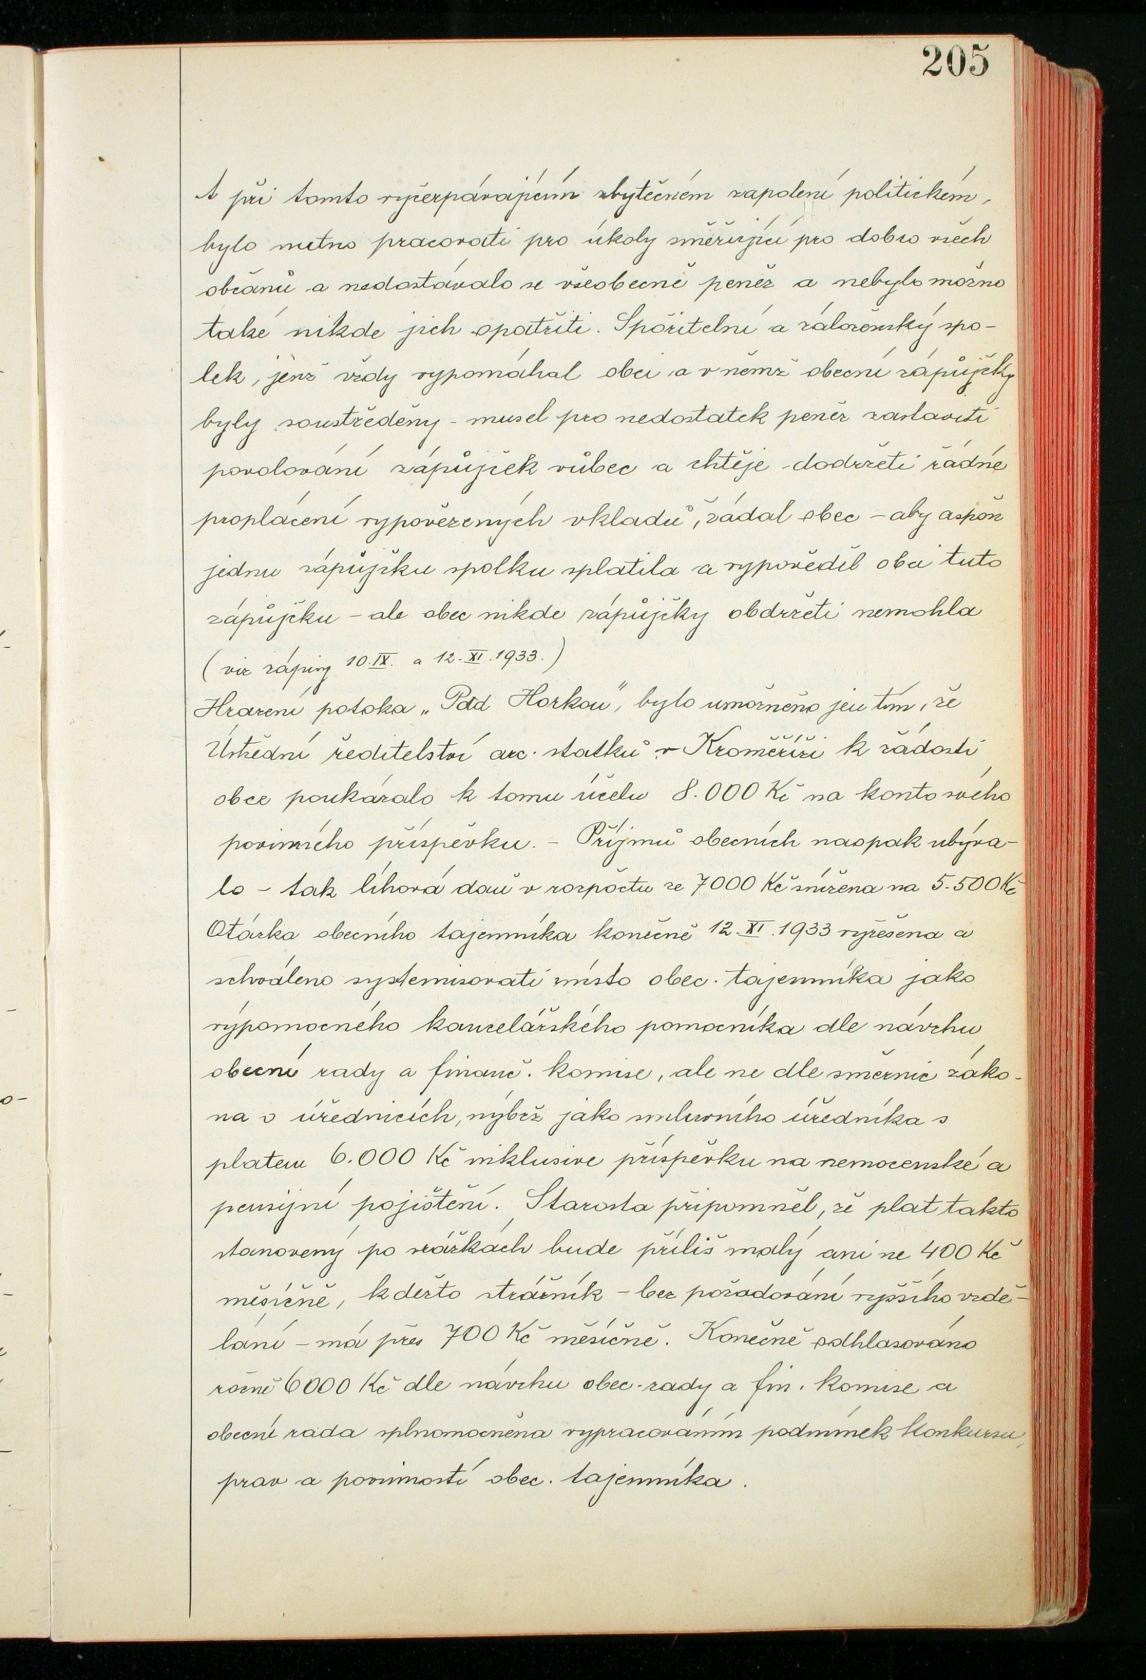 205
A při tomto vyčerpávajícím zbytečném zapolení politickém,
bylo nutno pracovati pro úkoly směřující pro dobro všech
občanů a nedostávalo se všeobecně peněz a nebylo možno
také nikde jich opatřiti. Spořitelní a záloženský spo-
lek, jenž vždy vypomáhal obci a v němž obecní zápůjčky
byly soustředěny - musel pro nedostatek peněz zastaviti
povolování zápůjček vůbec a chtěje dodržeti řádné
proplácení vypovězených vkladů, žádal obec - aby aspoň
jednu zápůjčku spolku splatila a vypověděl obci tuto
zápůjčku - ale obec nikde zápůjčky obdržeti nemohla
(viz zápisy 10.IX. a 12.XI.1933.)
Hrazení potoka „Pod Horkou", bylo umožněno jen tím, že
Ústřední ředitelství arc. statků v Kroměříži k žádosti
obce poukázalo k tomu účelu 8.000 Kč na konto svého
povinného příspěvku. - Příjmů obecních naopak ubýva-
lo - tak líhová daň v rozpočtu ze 7000 Kč snížena na 5.500 Kč
Otázka obecního tajemníka konečně 12.XI.1933 vyřešena a
schváleno systemisovati místo obec. tajemníka jako
výpomocného kancelářského pomocníka dle návrhu
obecní rady a finanč. komise, ale ne dle směrnic záko-
na o úřednících, nýbrž jako smluvního úředníka s
platem 6.000 Kč inklusive příspěvku na nemocenské a
pensijní pojištění. Starosta připomněl, že plat takto
stanovený po srážkách bude příliš malý ani ne 400 Kč
měsíčně, kdežto strážník - bez požadování vyššího vzdě-
lání - má přes 700 Kč měsíčně. Konečně odhlasováno
ročně 6000 Kč dle návrhu obec. rady a fin. komise a
obecní rada splnomocněna vypracováním podmínek konkursu,
prav a povinností obec. tajemníka.